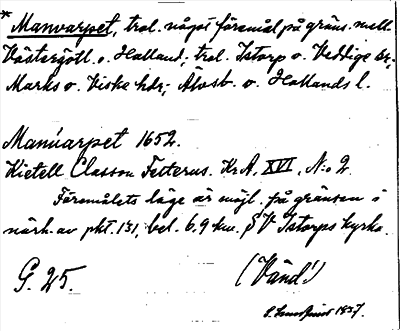 * Manvarpet, trol. något föremål på gräns. mell.
Västergötl. o. Halland; trol. Istorp o. Veddige sn;
Marks o. Viske hdr; Älvsb. o. Hallands l.
Manuarpet 1652.
Kietell Classon Felterus. KrA, XVI, N:o 2.
Föremålets läge är möjl. på gränsen i
närh. av pkt. 131, bel. 6.9 km. SV Istorps kyrka.
G. 25.
(Vänd!)
1937.